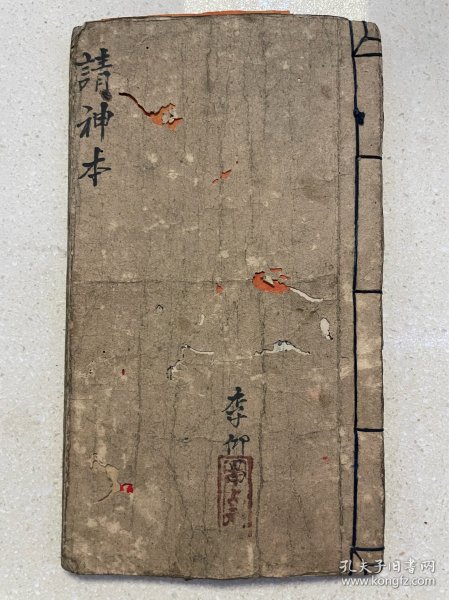 請神本
李仰
孔夫子旧书网
www.kongfz.com